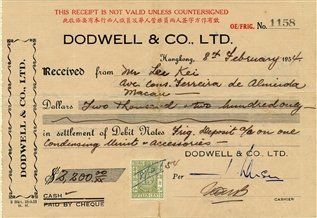 THIS RECEIPT IS NOT VALID UNLESS COUNTERSIGNED
OE/FRIG. No. 1158
DODWELL & CO., LTD.
Hongkong, 8th February 1954
Received from Mr Lei Kei
Ave. Cons. Ferreira de Almeida
Macau
Dollars Two thousand & two hundred only
in settlement of Debit Notes Frig. Deposit a/c on one
Condensing Unit & accessories
DODWELL & CO., LTD.
$2,200.00
CASH
PAID BY CHEQUE
Per
CASHIER
DODWELL & CO., LTD.